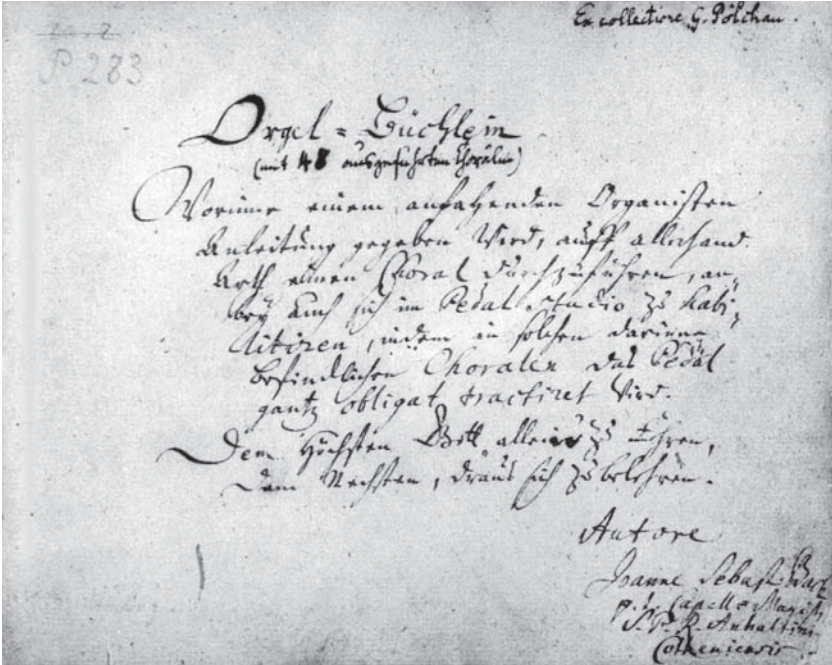 Ex collectione G. Pölchau.
P. 283
Orgel=Büchlein
(mit 48 ausgeführten Chorälen)
Worinne einem anfahenden Organisten
Anleitung gegeben wird, auff allerhand
Arth einen Choral durchzuführen, an-
bey auch sich im Pedal studio zu habi-
litiren, indem in solchen darinne
befindlichen Choralen das Pedal
gantz obligat tractiret wird.
Dem Höchsten Gott allein zu Ehren,
Dem Nechsten, draus sich zu belehren.
Autore
Joanne Sebast. Bach
p. t. Capellæ Magistri
S. P. R. Anhaltini-
Cotheniensis.